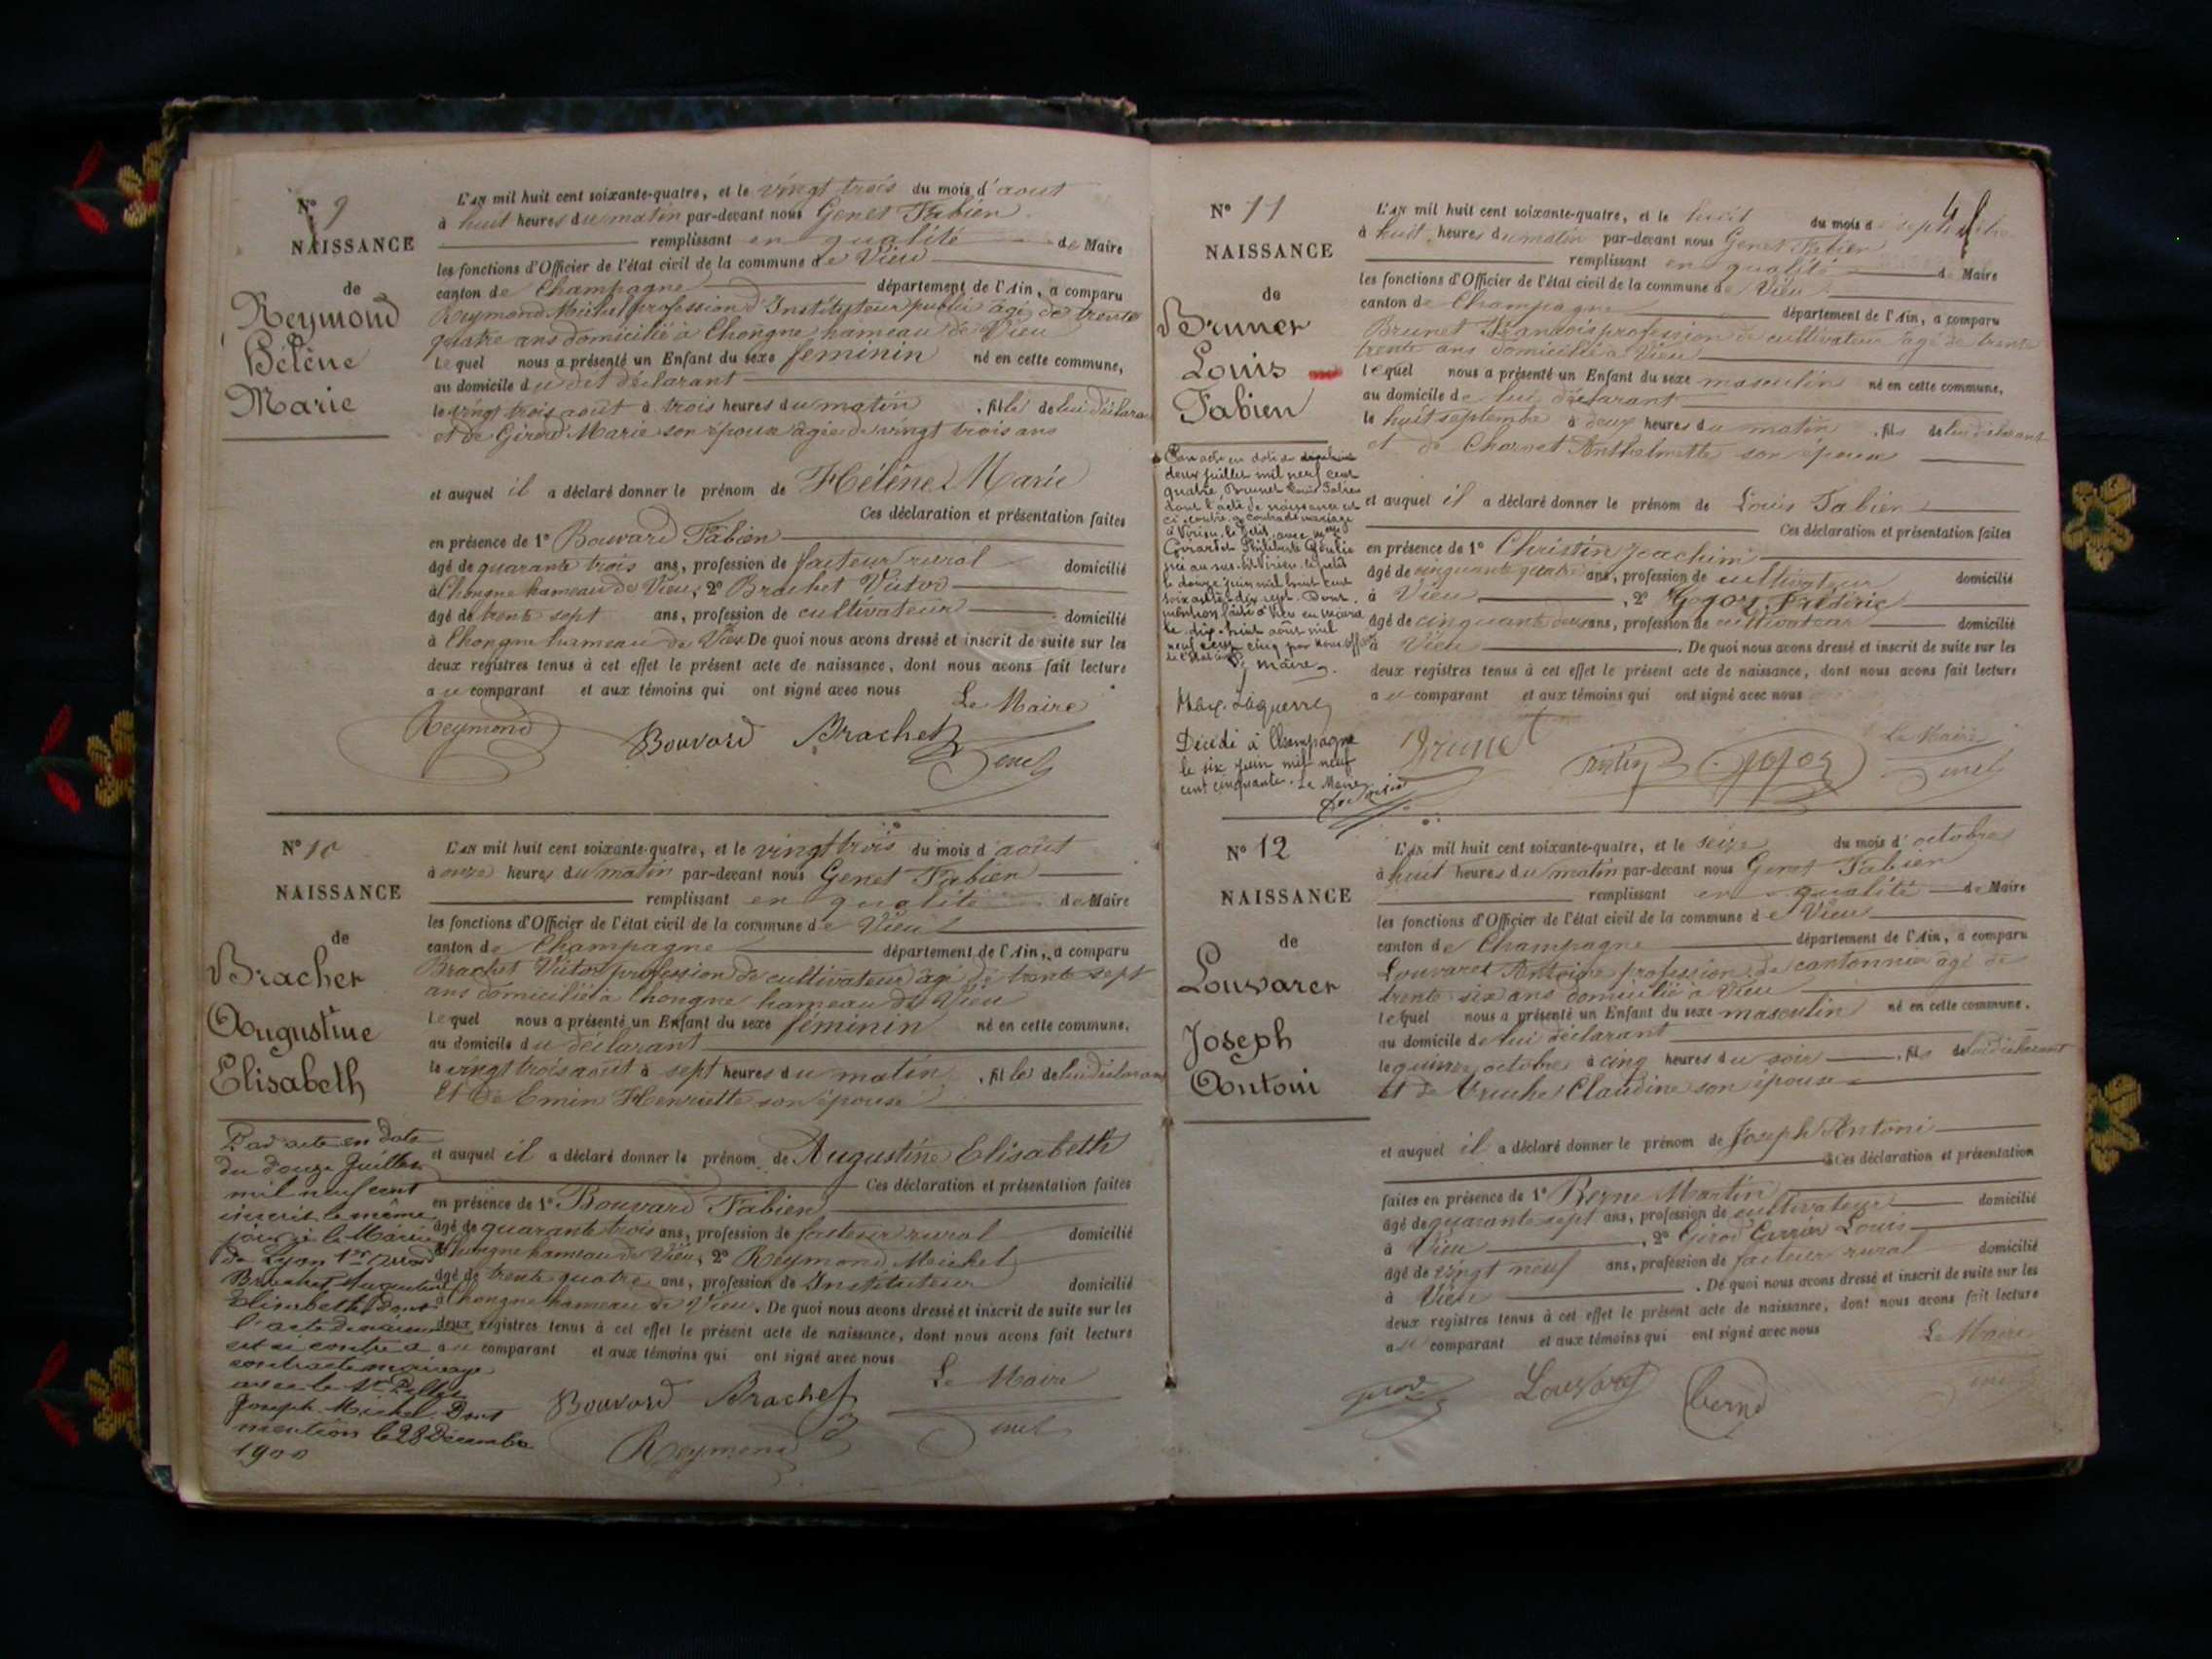 N° 9
NAISSANCE
de
Reymond
Hélène
Marie
L'AN mil huit cent soixante-quatre, et le vingt trois du mois d'aout
à huit heures du matin par-devant nous Genet Fabien
remplissant en qualité de Maire
les fonctions d'Officier de l'état civil de la commune de Vieu
canton de Champagne département de l'Ain, a comparu
Reymond Michel profession d'Instituteur public agé de trente
quatre ans domicilié à Chongne hameau de Vieu
lequel nous a présenté un Enfant du sexe feminin né en cette commune,
au domicile du dit déclarant
le vingt trois août à trois heures du matin, fille de lui déclarant
et de Girod Marie son épouse agée de vingt trois ans
et auquel il a déclaré donner le prénom de Hélène Marie
Ces déclaration et présentation faites
en présence de 1° Bouvard Fabien
âgé de quarante trois ans, profession de facteur rural domicilié
à Chongne hameau de Vieu, 2° Brachet Victor
âgé de trente sept ans, profession de cultivateur domicilié
à Chongne hameau de Vieu De quoi nous avons dressé et inscrit de suite sur les
deux registres tenus à cet effet le présent acte de naissance, dont nous avons fait lecture
au comparant et aux témoins qui ont signé avec nous
Le Maire
Reymond Bouvard Brachet Genet
N° 10
NAISSANCE
de
Brachet
Augustine
Elisabeth
L'AN mil huit cent soixante-quatre, et le vingt trois du mois d'août
à onze heures du matin par-devant nous Genet Fabien
remplissant en qualité de Maire
les fonctions d'Officier de l'état civil de la commune de Vieu
canton de Champagne département de l'Ain, a comparu
Brachet Victor profession de cultivateur agé de trente sept
ans domicilié à Chongne hameau de Vieu
lequel nous a présenté un Enfant du sexe féminin né en cette commune,
au domicile du déclarant
le vingt trois aout à sept heures du matin, fille de lui déclarant
Et de Emin Henriette son épouse
et auquel il a déclaré donner le prénom de Augustine Elisabeth
Ces déclaration et présentation faites
en présence de 1° Bouvard Fabien
âgé de quarante trois ans, profession de facteur rural domicilié
à Chongne hameau de Vieu, 2° Reymond Michel
âgé de trente quatre ans, profession de Instituteur domicilié
à Chongne hameau de Vieu. De quoi nous avons dressé et inscrit de suite sur les
deux registres tenus à cet effet le présent acte de naissance, dont nous avons fait lecture
au comparant et aux témoins qui ont signé avec nous
Le Maire
Bouvard Brachet Genet
Reymond
Par acte en date
du douze Juillet
mil neuf cent
inscrit le même
jour à la Mairie
de Lyon 1er
Brachet Augustine
Elisabeth dont
l'acte de naissance
est ci contre a
contracté mariage
avec le Sr
Joseph Michel. Dont
mention le 28 Décembre
1900
N° 11
NAISSANCE
de
Brunet
Louis
Fabien
L'AN mil huit cent soixante-quatre, et le huit du mois de septembre
à huit heures du matin par-devant nous Genet Fabien
remplissant en qualité de Maire
les fonctions d'Officier de l'état civil de la commune de Vieu
canton de Champagne département de l'Ain, a comparu
Brunet François profession de cultivateur âgé de trente
trente ans domicilié à Vieu
lequel nous a présenté un Enfant du sexe masculin né en cette commune,
au domicile de lui déclarant
le huit septembre à deux heures du matin, fils de lui déclarant
et de Charvet Anthelmette son épouse
et auquel il a déclaré donner le prénom de Louis Fabien
Ces déclaration et présentation faites
en présence de 1° Christin Joachim
âgé de cinquante quatre ans, profession de cultivateur domicilié
à Vieu, 2° Gojoz Frédéric
âgé de cinquante deux ans, profession de cultivateur domicilié
à Vieu. De quoi nous avons dressé et inscrit de suite sur les
deux registres tenus à cet effet le présent acte de naissance, dont nous avons fait lecture
au comparant et aux témoins qui ont signé avec nous
Le Maire
Brunet Gojoz Genet
Par acte en date du
deux juillet mil neuf cent
quatre, Brunet Louis Fabien
dont l'acte de naissance est
ci-contre a contracté mariage
à Virieu le petit avec Melle
Philiberte
née au susdit Virieu le petit
le douze juin mil huit cent
soixante-dix sept. Dont
mention faite à Vieu en mairie
le dix-huit août mil
neuf cent cinq par nous officier
de l'état civil
Le Maire
Décédé à Champagne
le six juin mil neuf
cent cinquante. Le Maire
N° 12
NAISSANCE
de
Louvaret
Joseph
Antoni
L'AN mil huit cent soixante-quatre, et le seize du mois d'octobre
à huit heures du matin par-devant nous Genet Fabien
remplissant en qualité de Maire
les fonctions d'Officier de l'état civil de la commune de Vieu
canton de Champagne département de l'Ain, a comparu
Louvaret Antoine profession de cantonnier âgé de
trente six ans domicilié à Vieu
lequel nous a présenté un Enfant du sexe masculin né en cette commune,
au domicile de lui déclarant
le quinze octobre à cinq heures du soir, fils de lui déclarant
et de Claudine son épouse
et auquel il a déclaré donner le prénom de Joseph Antoni
Ces déclaration et présentation
faites en présence de 1° Berne Martin
âgé de quarante sept ans, profession de cultivateur domicilié
à Vieu, 2° Girod Carrier Louis
âgé de vingt neuf ans, profession de facteur rural domicilié
à Vieu. De quoi nous avons dressé et inscrit de suite sur les
deux registres tenus à cet effet le présent acte de naissance, dont nous avons fait lecture
au comparant et aux témoins qui ont signé avec nous
Le Maire
Girod Louvaret Berne Genet